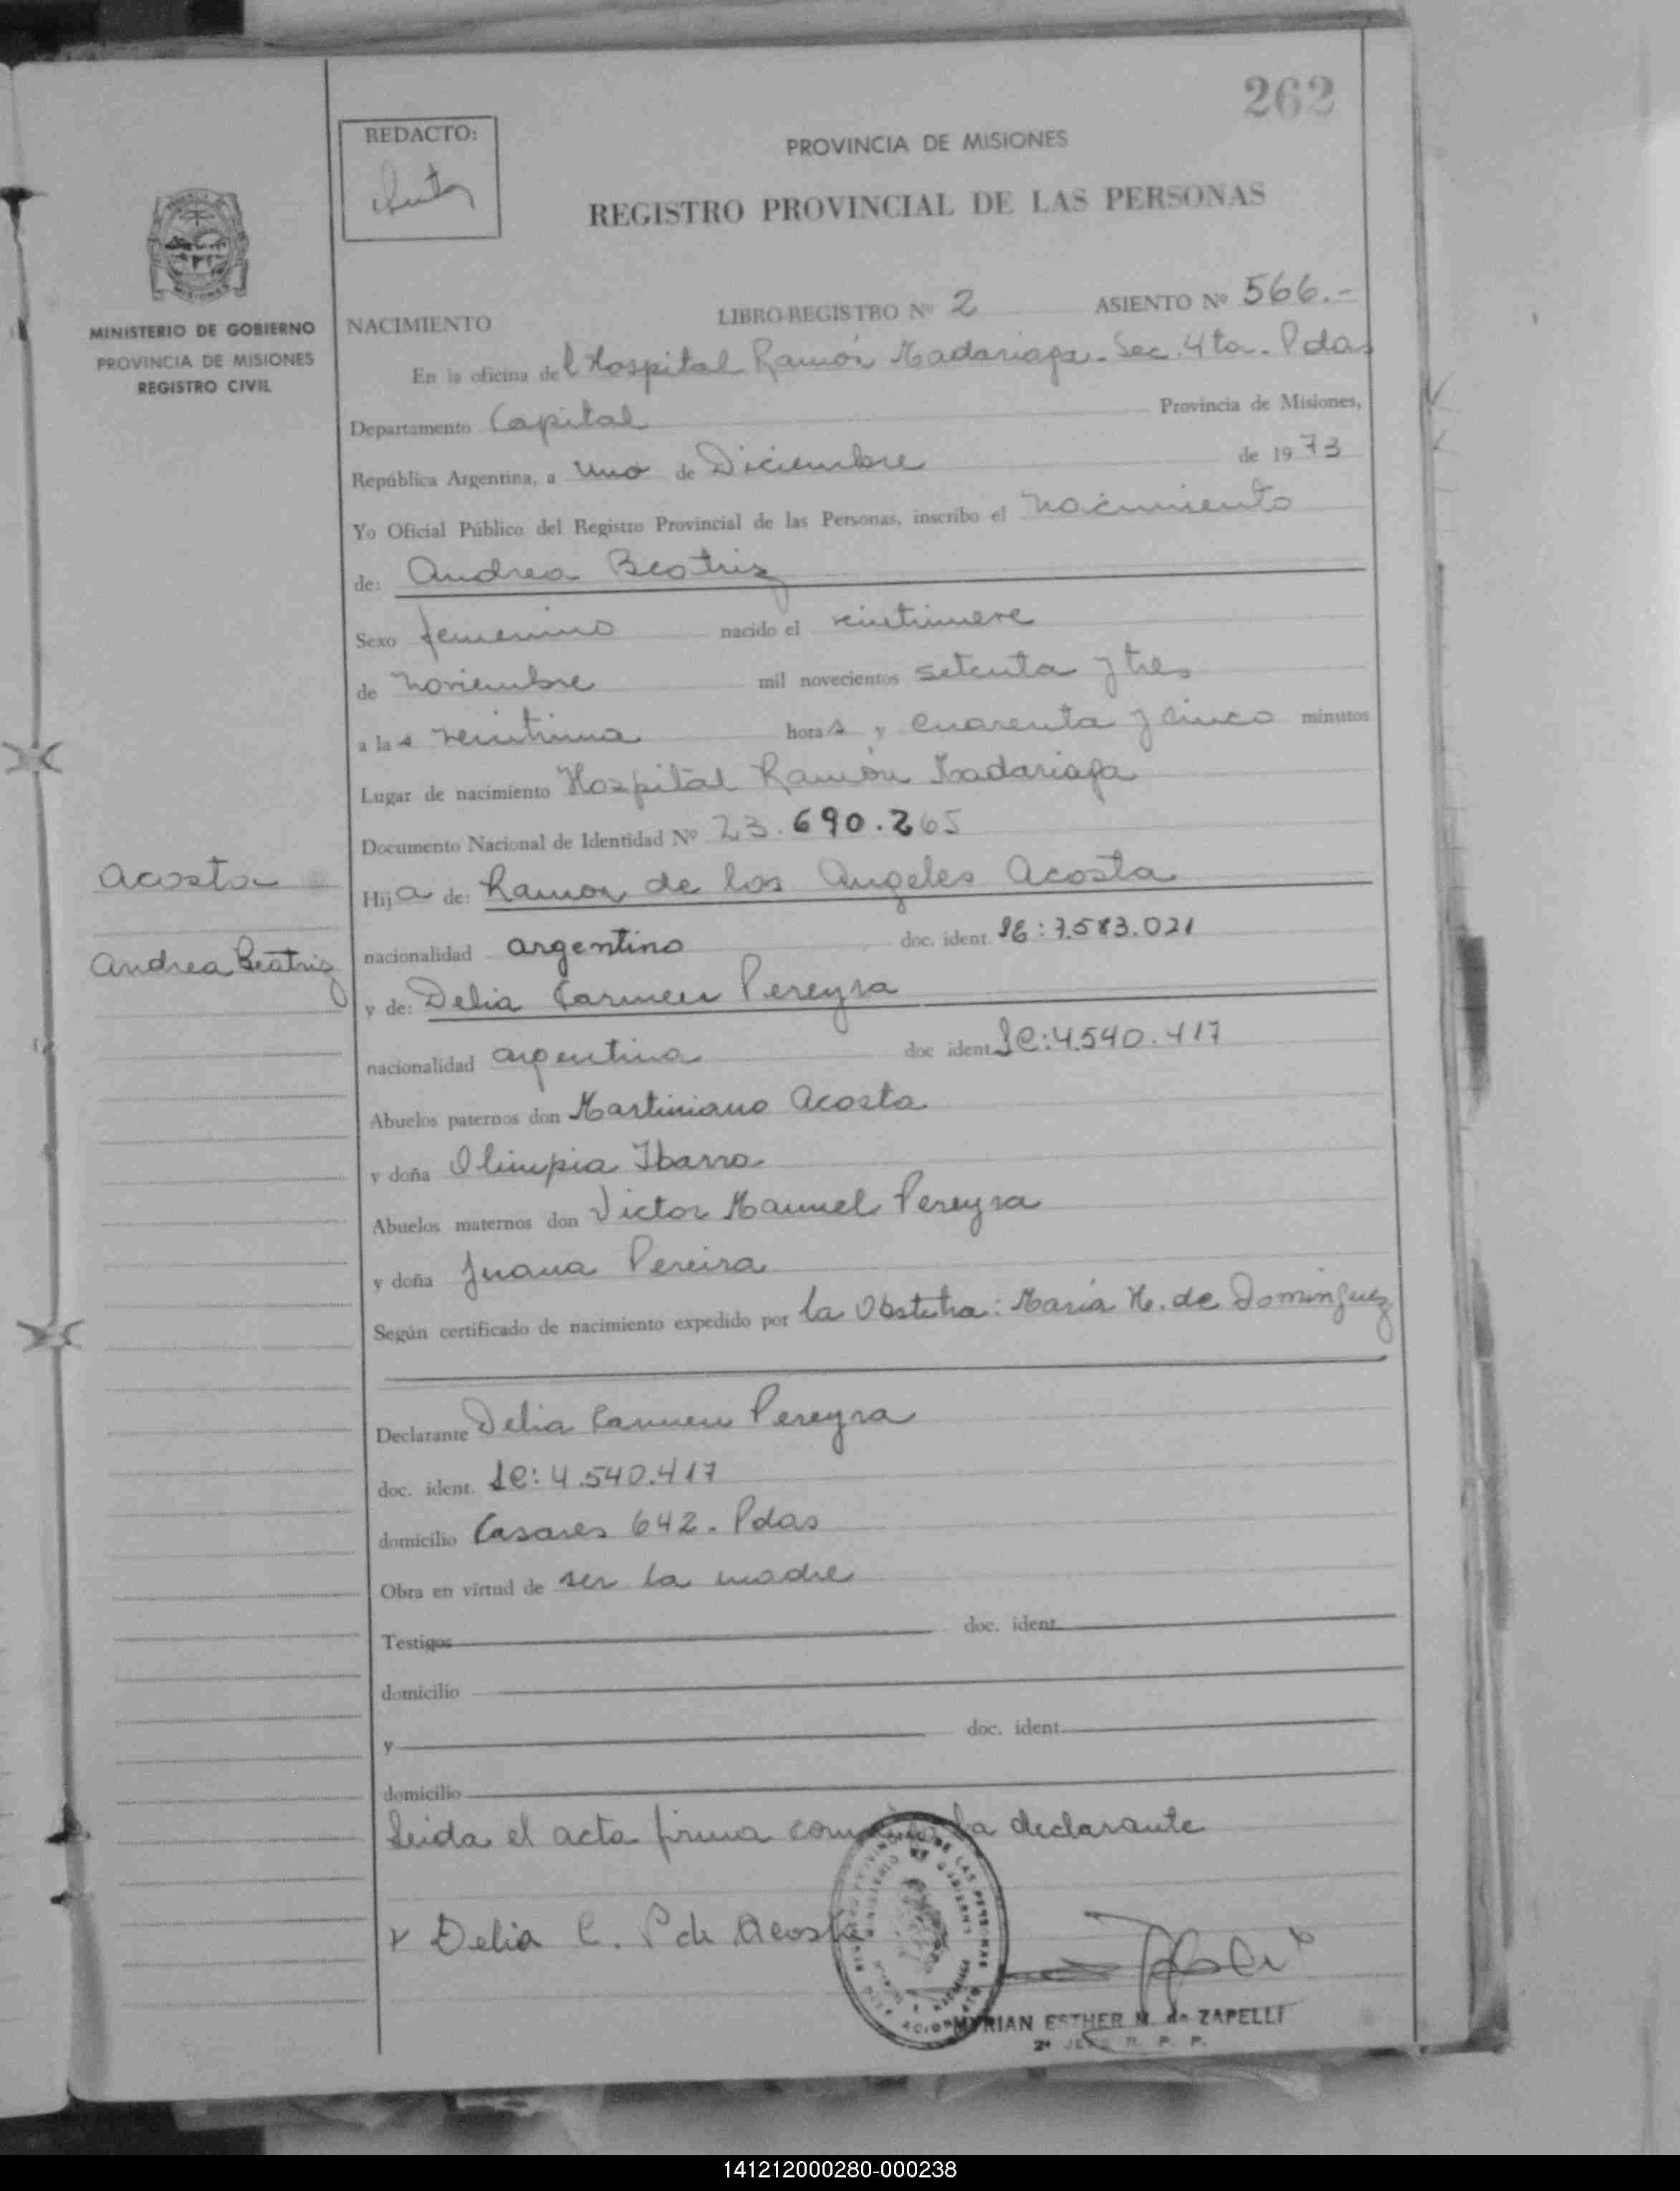 262
REDACTO:
PROVINCIA DE MISIONES
REGISTRO PROVINCIAL DE LAS PERSONAS
MINISTERIO DE GOBIERNO
PROVINCIA DE MISIONES
REGISTRO CIVIL
NACIMIENTO LIBRO-REGISTRO Nº 2 ASIENTO Nº 566.-
En la oficina del Hospital Ramón Madariaga. Sec. 4ta. Pdas
Departamento Capital Provincia de Misiones,
República Argentina, a uno de Diciembre de 1973
Yo Oficial Público del Registro Provincial de las Personas, inscribo el nacimiento
de: Andrea Beatriz
Sexo femenino nacido el veintinueve
de noviembre mil novecientos setenta y tres
a las veintiuna horas y cuarenta y cinco minutos
Lugar de nacimiento Hospital Ramón Madariaga
Documento Nacional de Identidad Nº 23.690.265
Acosta
Hija de: Ramon de los Angeles Acosta
Andrea Beatriz
nacionalidad argentino doc. ident. LE: 7.583.021
y de: Delia Carmen Pereyra
nacionalidad argentina doc ident. LC: 4.540.417
Abuelos paternos don Martiniano Acosta
y doña Olimpia Ibarra
Abuelos maternos don Victor Manuel Pereyra
y doña Juana Pereira
Según certificado de nacimiento expedido por la Obstetra: María H. de Dominguez
Declarante Delia Carmen Pereyra
doc. ident. LC: 4.540.417
domicilio Casares 642. Pdas
Obra en virtud de ser la madre
Testigos doc. ident.
domicilio
y doc. ident.
domicilio
Leida el acta firma la declarante
x Delia C. P de Acosta
MYRIAN ESTHER M. de ZAPELLI
2º JEFE R. P. P.
141212000280-000238